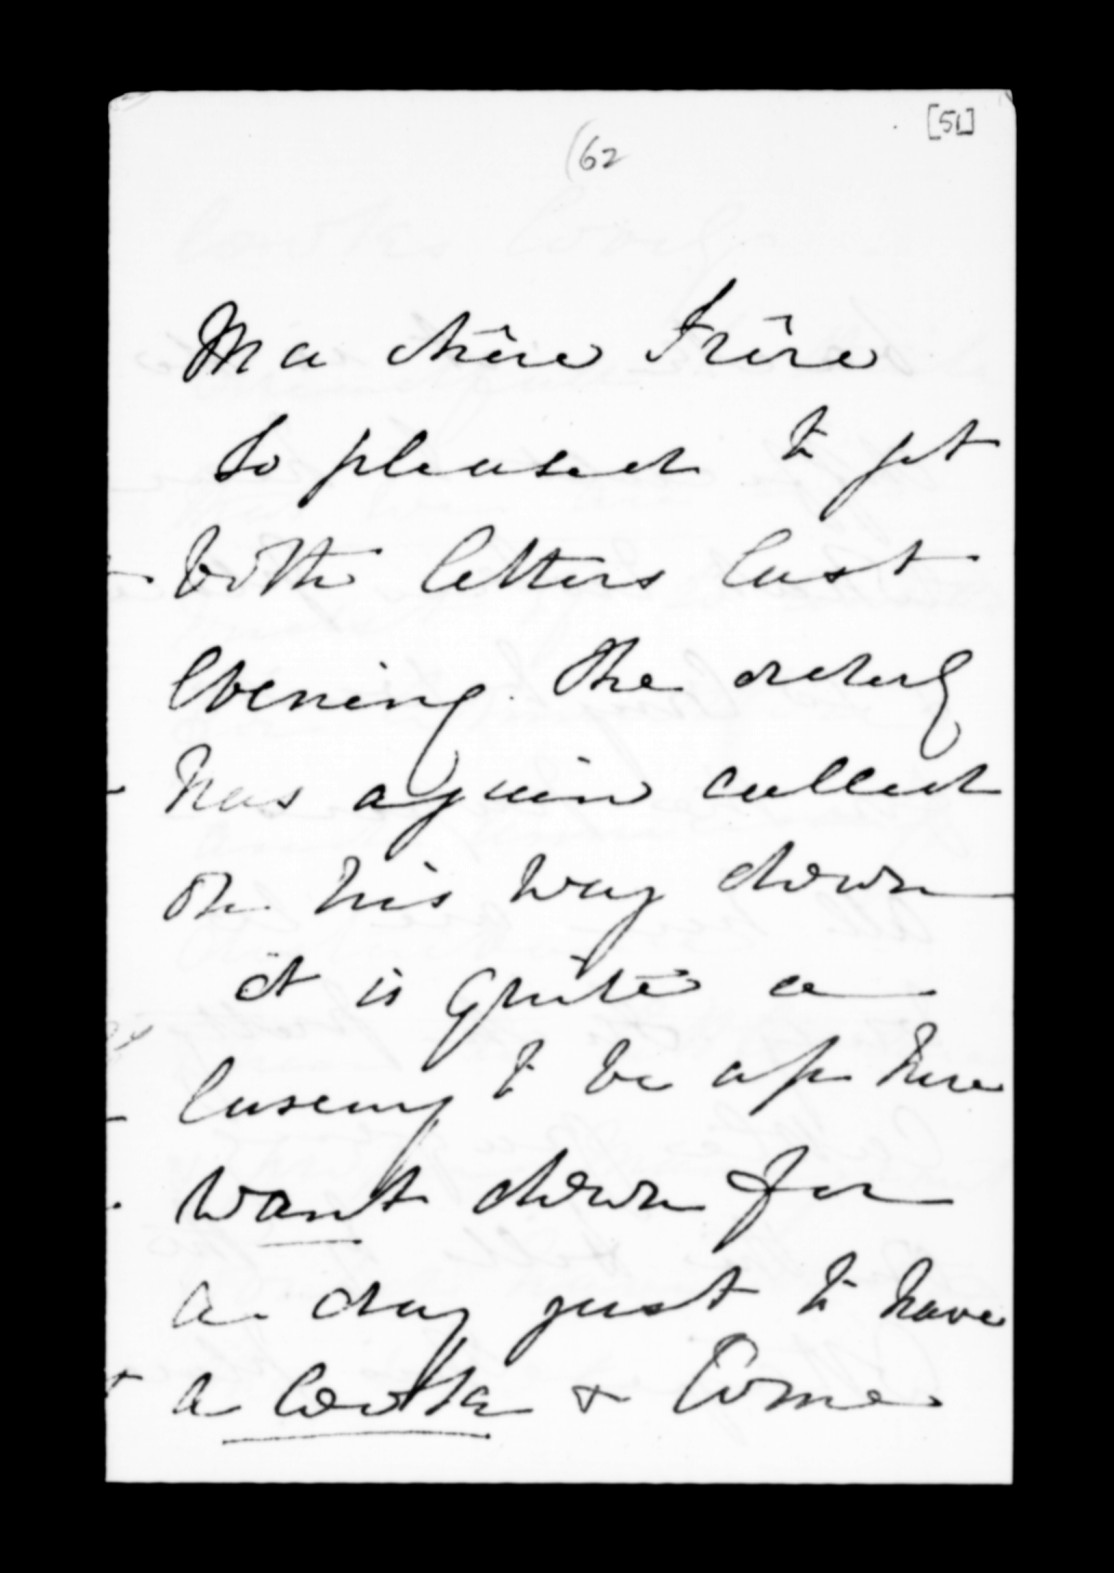 [51]
(62
Ma chère Frère
So pleased to get
both letters last
Evening. The orderly
has again called
on his way down
it is quite a
luxury to be up here
want down for
a day just to have
a & Come